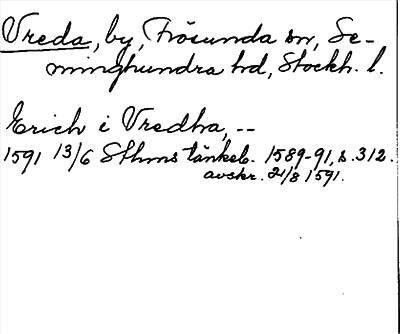 Vreda, by, Frösunda sn, Se-
minghundra hd, Stockh. l.
Erich i Vredha, --
1591 13/6 Sthms tänkeb. 1589-91, s. 312.
avskr. 21/8 1591.